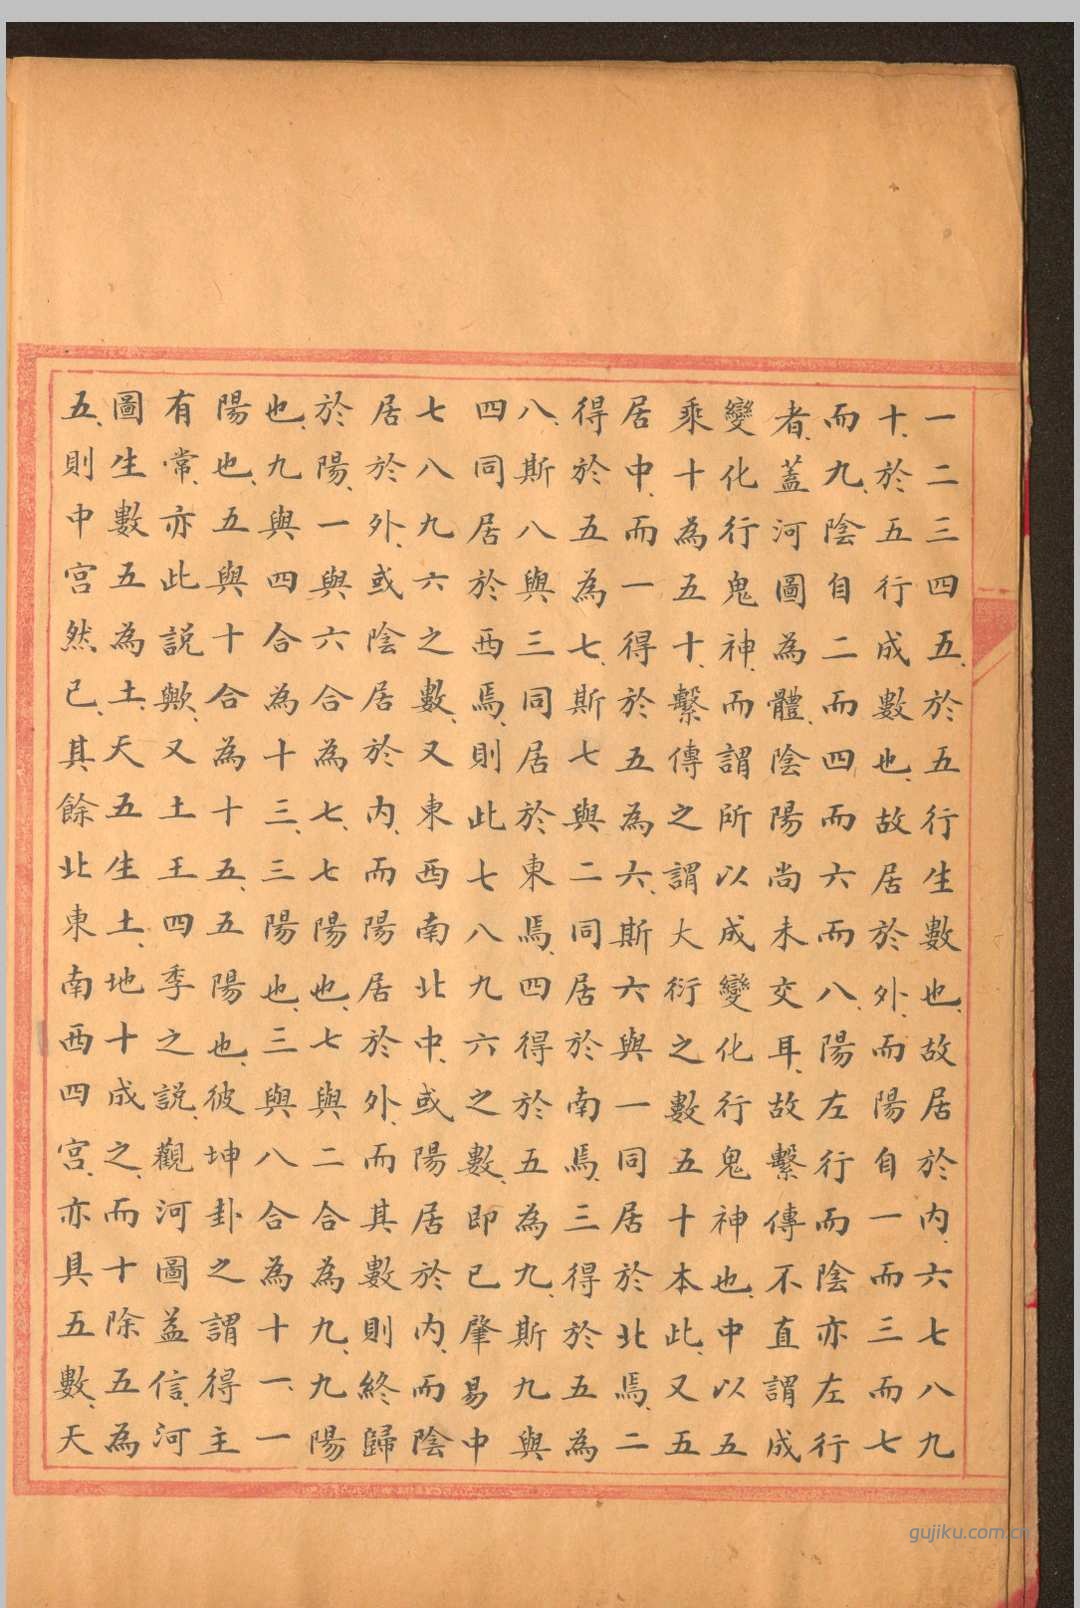 一二三四五、於五行生數也、故居於内、六七八九
十、於五行成數也、故居於外、而陽自一而三而七
而九、陰自二而四而六而八、陽左行而陰亦左行
者、蓋河圖為體、陰陽尚未交耳、故繫傳不直謂成
變化行鬼神、而謂所以成變化行鬼神也、中以五
乘十為五十、繫傳之謂大衍之數五十本此、又五
居中、而一得於五為六、斯六與一同居於北焉、二
得於五為七、斯七與二同居於南焉、三得於五為
八、斯八與三同居於東焉、四得於五為九、斯九與
四同居於西焉、則此七八九六之數、即已肇易中
七八九六之數、又東西南北中、或陽居於内、而陰
居於外、或陰居於内、而陽居於外、而其數則終歸
於陽、一與六合為七、七陽也、七與二合為九、九陽
也、九與四合為十三、三陽也、三與八合為十一、一
陽也、五與十合為十五、五陽也、彼坤卦之謂得主
有常、亦此説歟、又土王四季之説、觀河圖益信、河
圖生數五為土、天五生土、地十成之、而十除五為
五、則中宮然已、其餘北東南西四宮、亦具五數、天
gujiku.com.cn